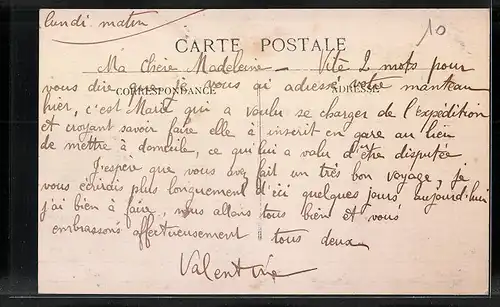 lundi matin
10
CARTE POSTALE
Ma Chère Madeleine — Vite 2 mots pour
vous dire que je vous ai adressé votre manteau
CORRESPONDANCE ADRESSE
hier, c'est Marie qui a voulu se charger de l'expédition
et croyant savoir faire elle à inscrit en gare au lieu
de mettre à domicile, ce qui lui a valu d'être disputée
J'espère que vous avez fait un très bon voyage, je
vous écrirais plus longuement d'ici quelques jours aujourd'hui
j'ai bien à faire, nous allons tous bien et vous
embrassons affectueusement tous deux
Valentine